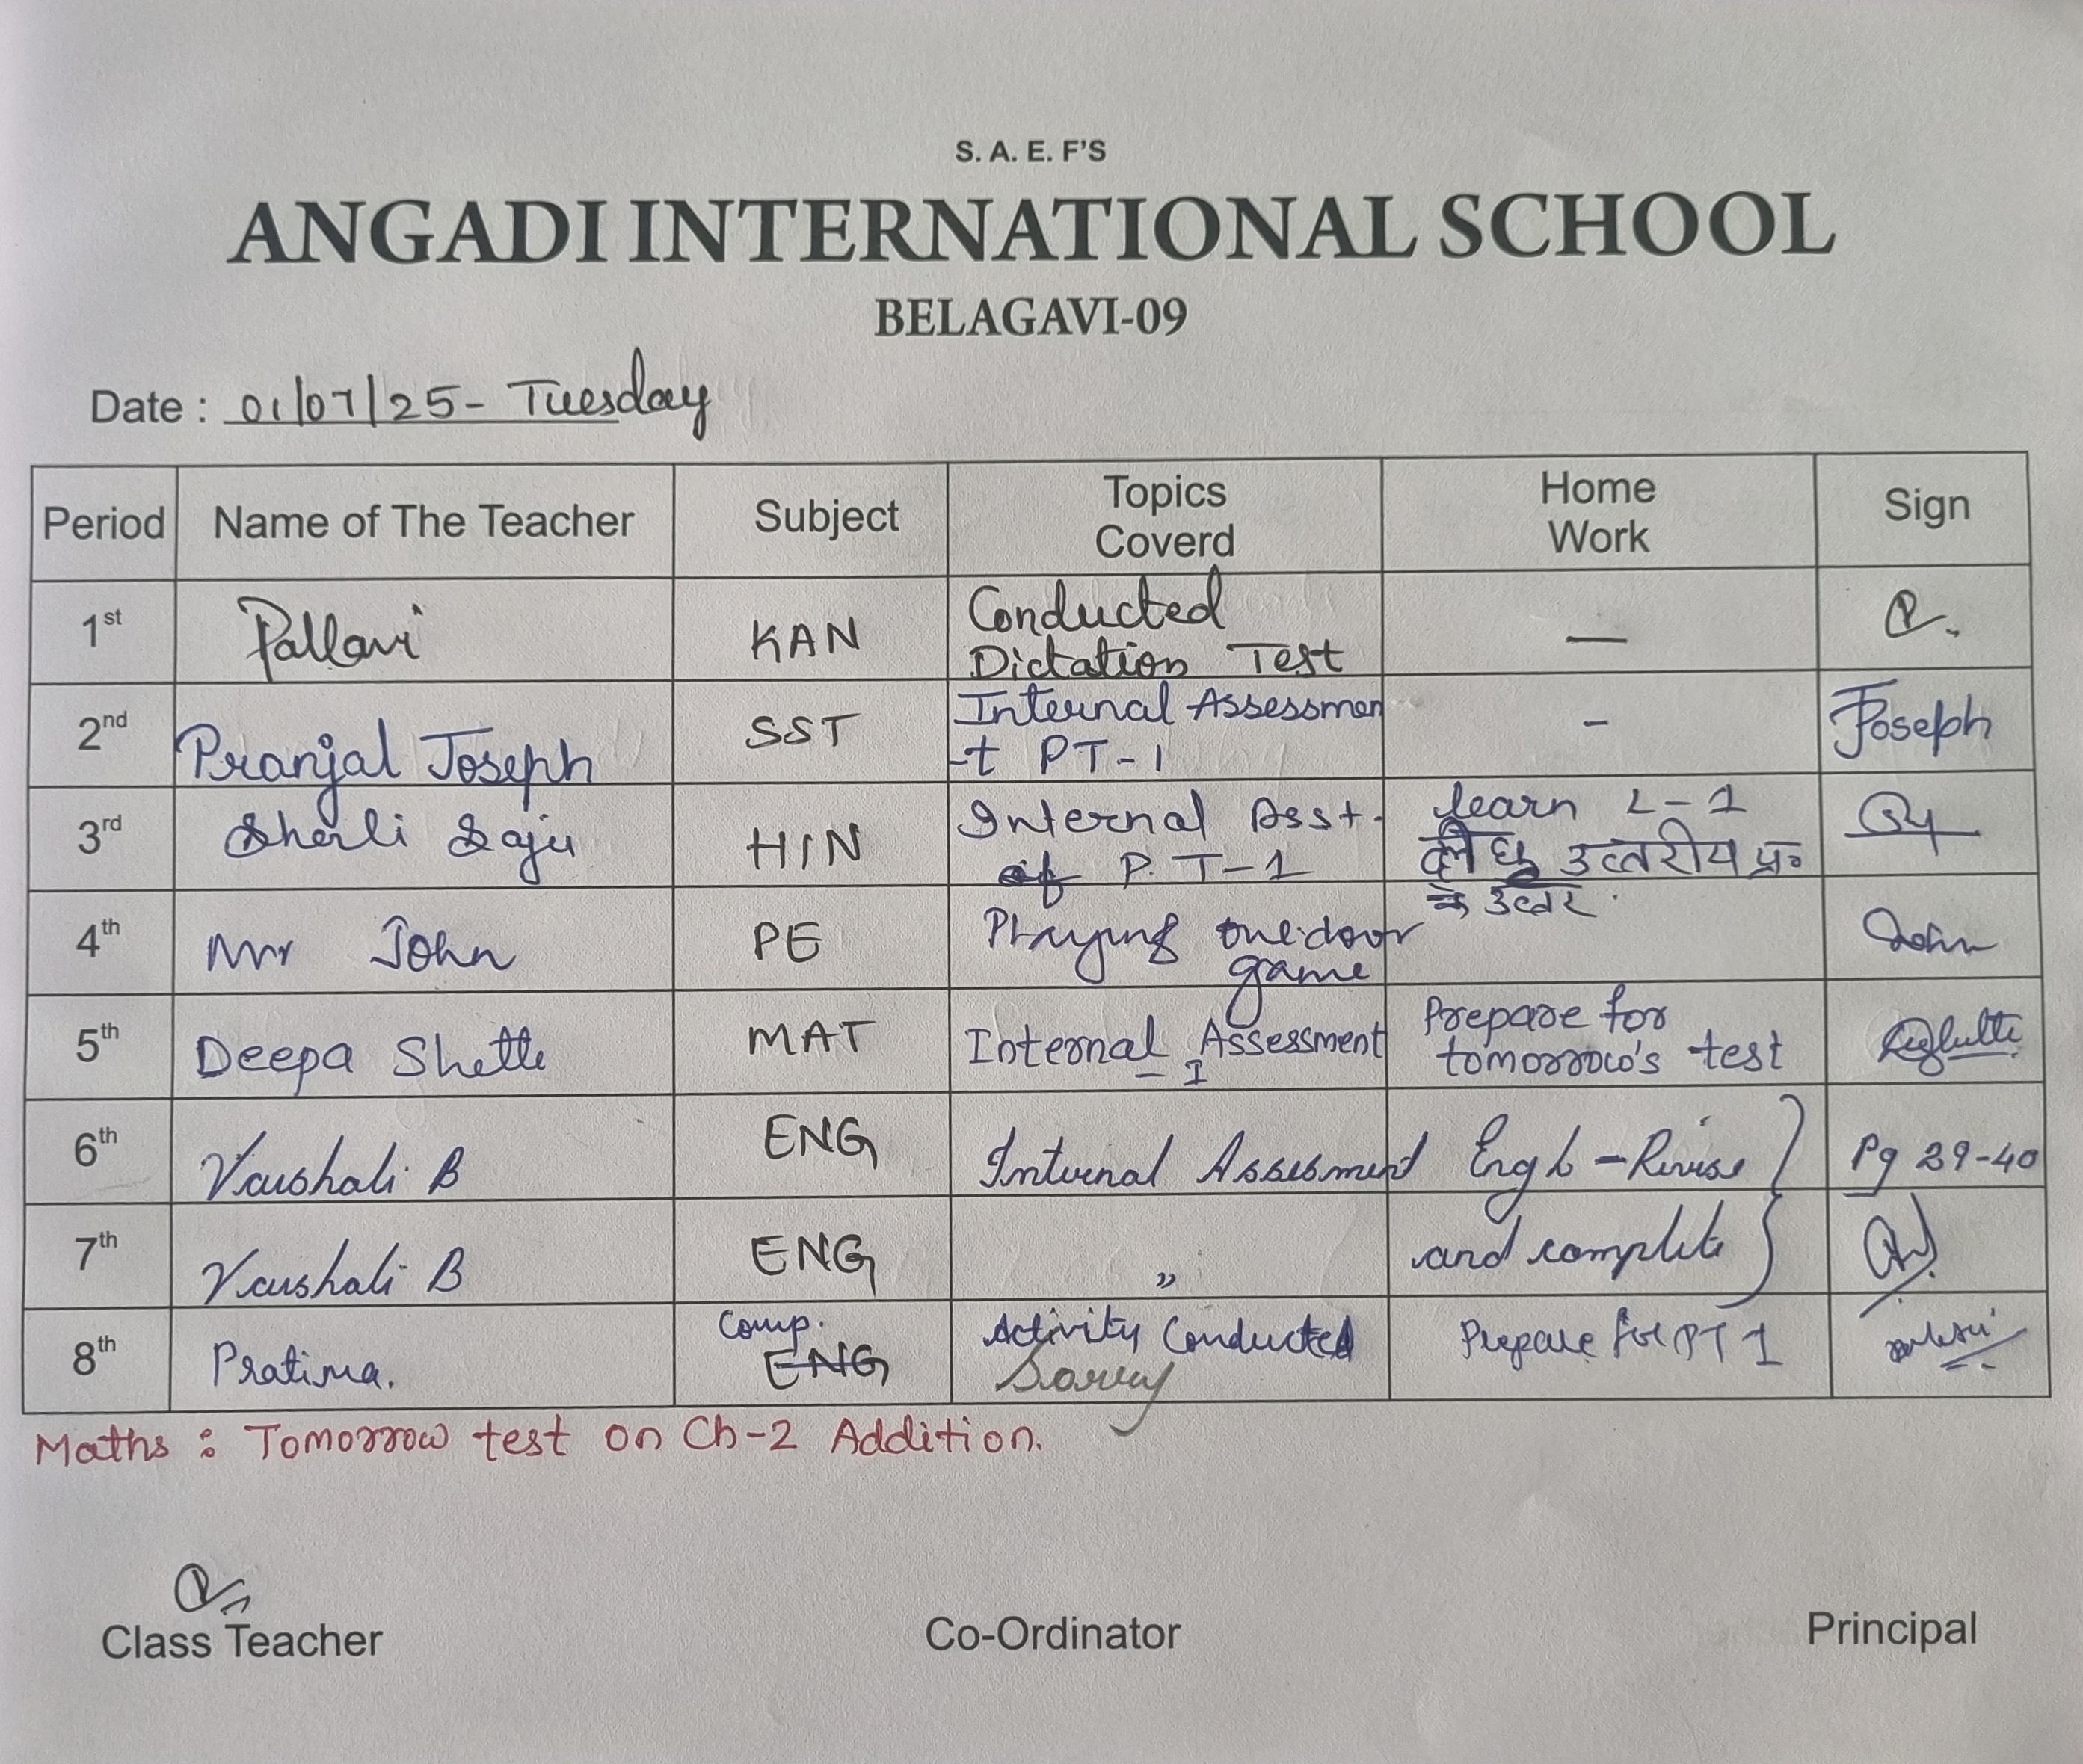 S. A. E. F'S
ANGADI INTERNATIONAL SCHOOL
BELAGAVI-09
Date : 01/07/25 - Tuesday
Period Name of The Teacher Subject Topics Coverd Home Work Sign
1st Pallavi KAN Conducted Dictation Test —
2nd Pranjal Joseph SST Internal Assessmen-t PT-1 - Joseph
3rd Sherli Saju HIN Internal Asst. of P.T-1 learn L-1 दीर्घ उत्तरीय प्र० के उत्तर
4th Mr John PE Playing game John
5th Deepa Shette MAT Internal Assessment - I Prepare for tomorrow's test
6th Vaishali B ENG Internal Assessment Engl - Revise Pg 29-40
7th Vaishali B ENG " and complete
8th Pratima. Comp. ENG Activity Conducted Prepare for PT 1
Maths : Tomorrow test on Ch-2 Addition.
Class Teacher Co-Ordinator Principal